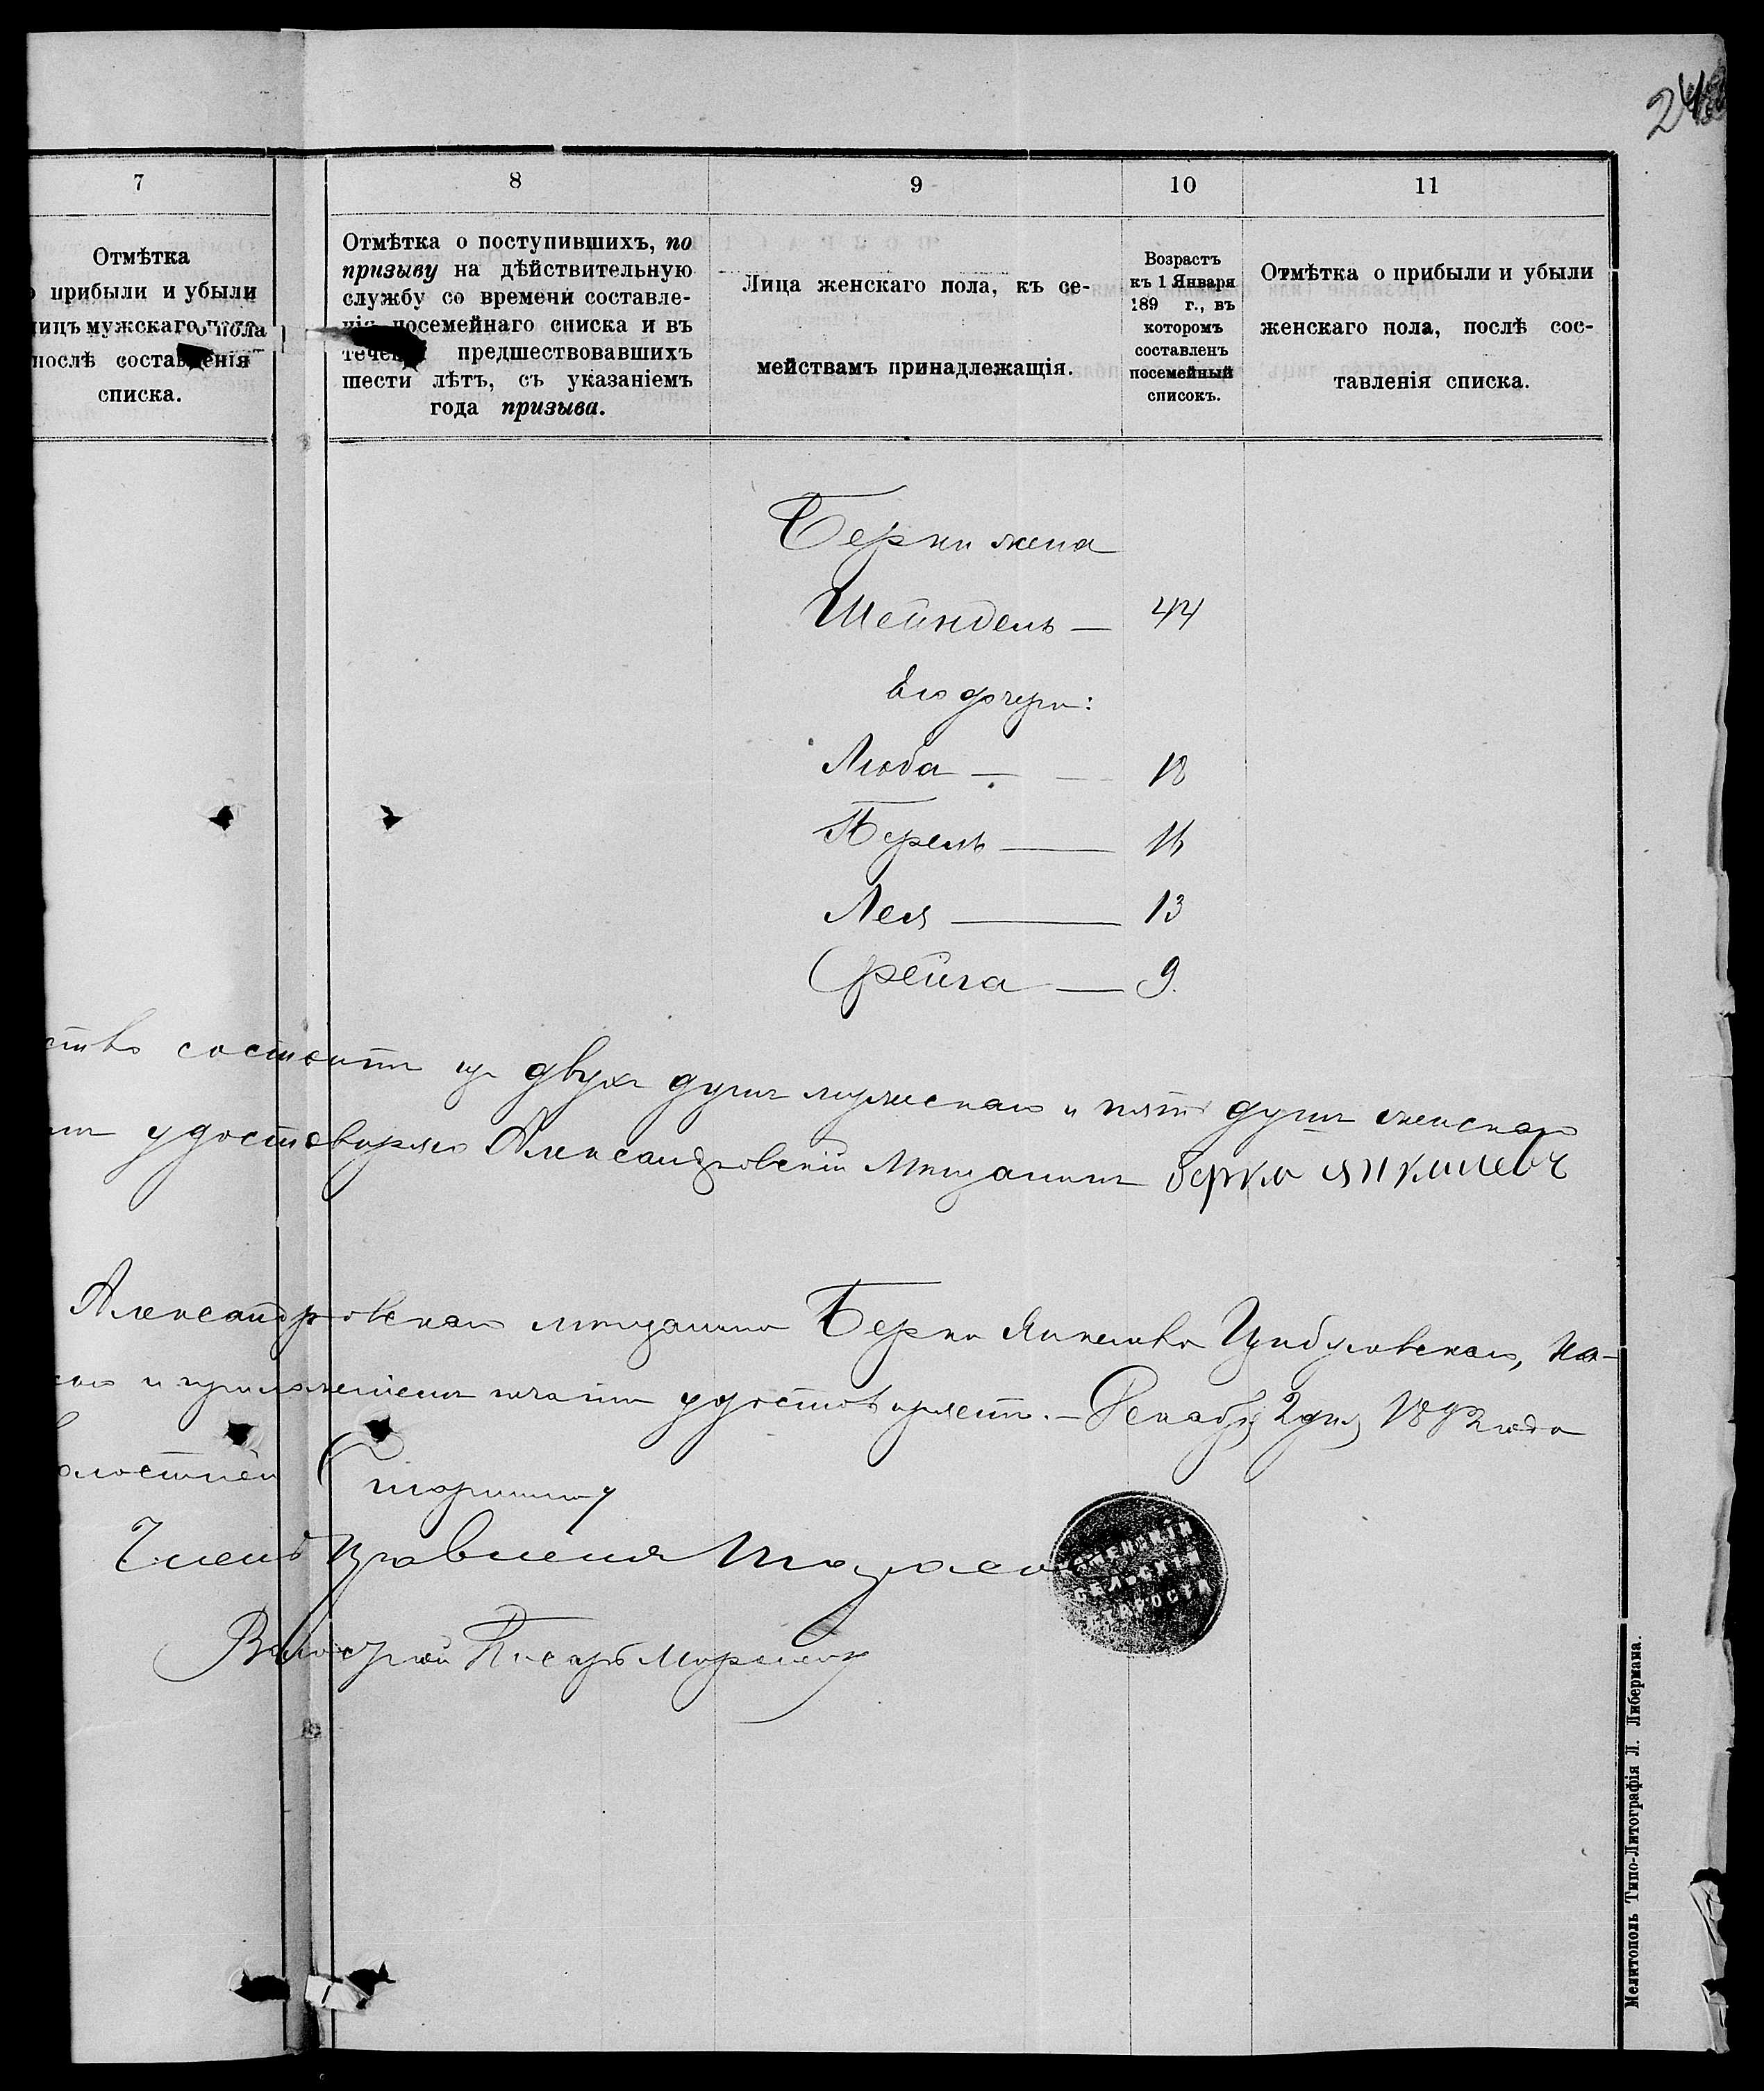 24
7
8
9
10
11
Отмѣтка
прибыли и убыли
лицъ мужскаго пола
послѣ составленія
списка.
Отмѣтка о поступившихъ, по
призыву на дѣйствительную
службу со времени составле-
нія посемейнаго списка и въ
теченіи предшествовавшихъ
шести лѣтъ, съ указаніемъ
года призыва.
Лица женскаго пола, къ се-
мействамъ принадлежащія.
Возрастъ
къ 1 Января
189 г., въ
которомъ
составленъ
посемейный
списокъ.
Отмѣтка о прибыли и убыли
женскаго пола, послѣ сос-
тавленія списка.
Берки жена
Шейндель — 44
Его дочери:
Люба — — 18
Перель — 16
Лея — 13
Фрейга — 9.
ство состоитъ изъ двухъ душъ мужскаго и пяти душъ женскаго
удостоверяю Александровскій Мещанинъ Берко Янкилевъ
Александровскаго мещанина Берко Янкелева Цибулевскаго, на-
и приложеніемъ печати удостоверяетъ. — Декабря 2 дня 1892 года
олостней Старшину
Членъ Правленія
Волостной Писарь
КАМЕНСКІЙ
СЕЛЬСКІЙ
СТАРОСТА
Мелитополь Типо-Литографія Л. Либермана.